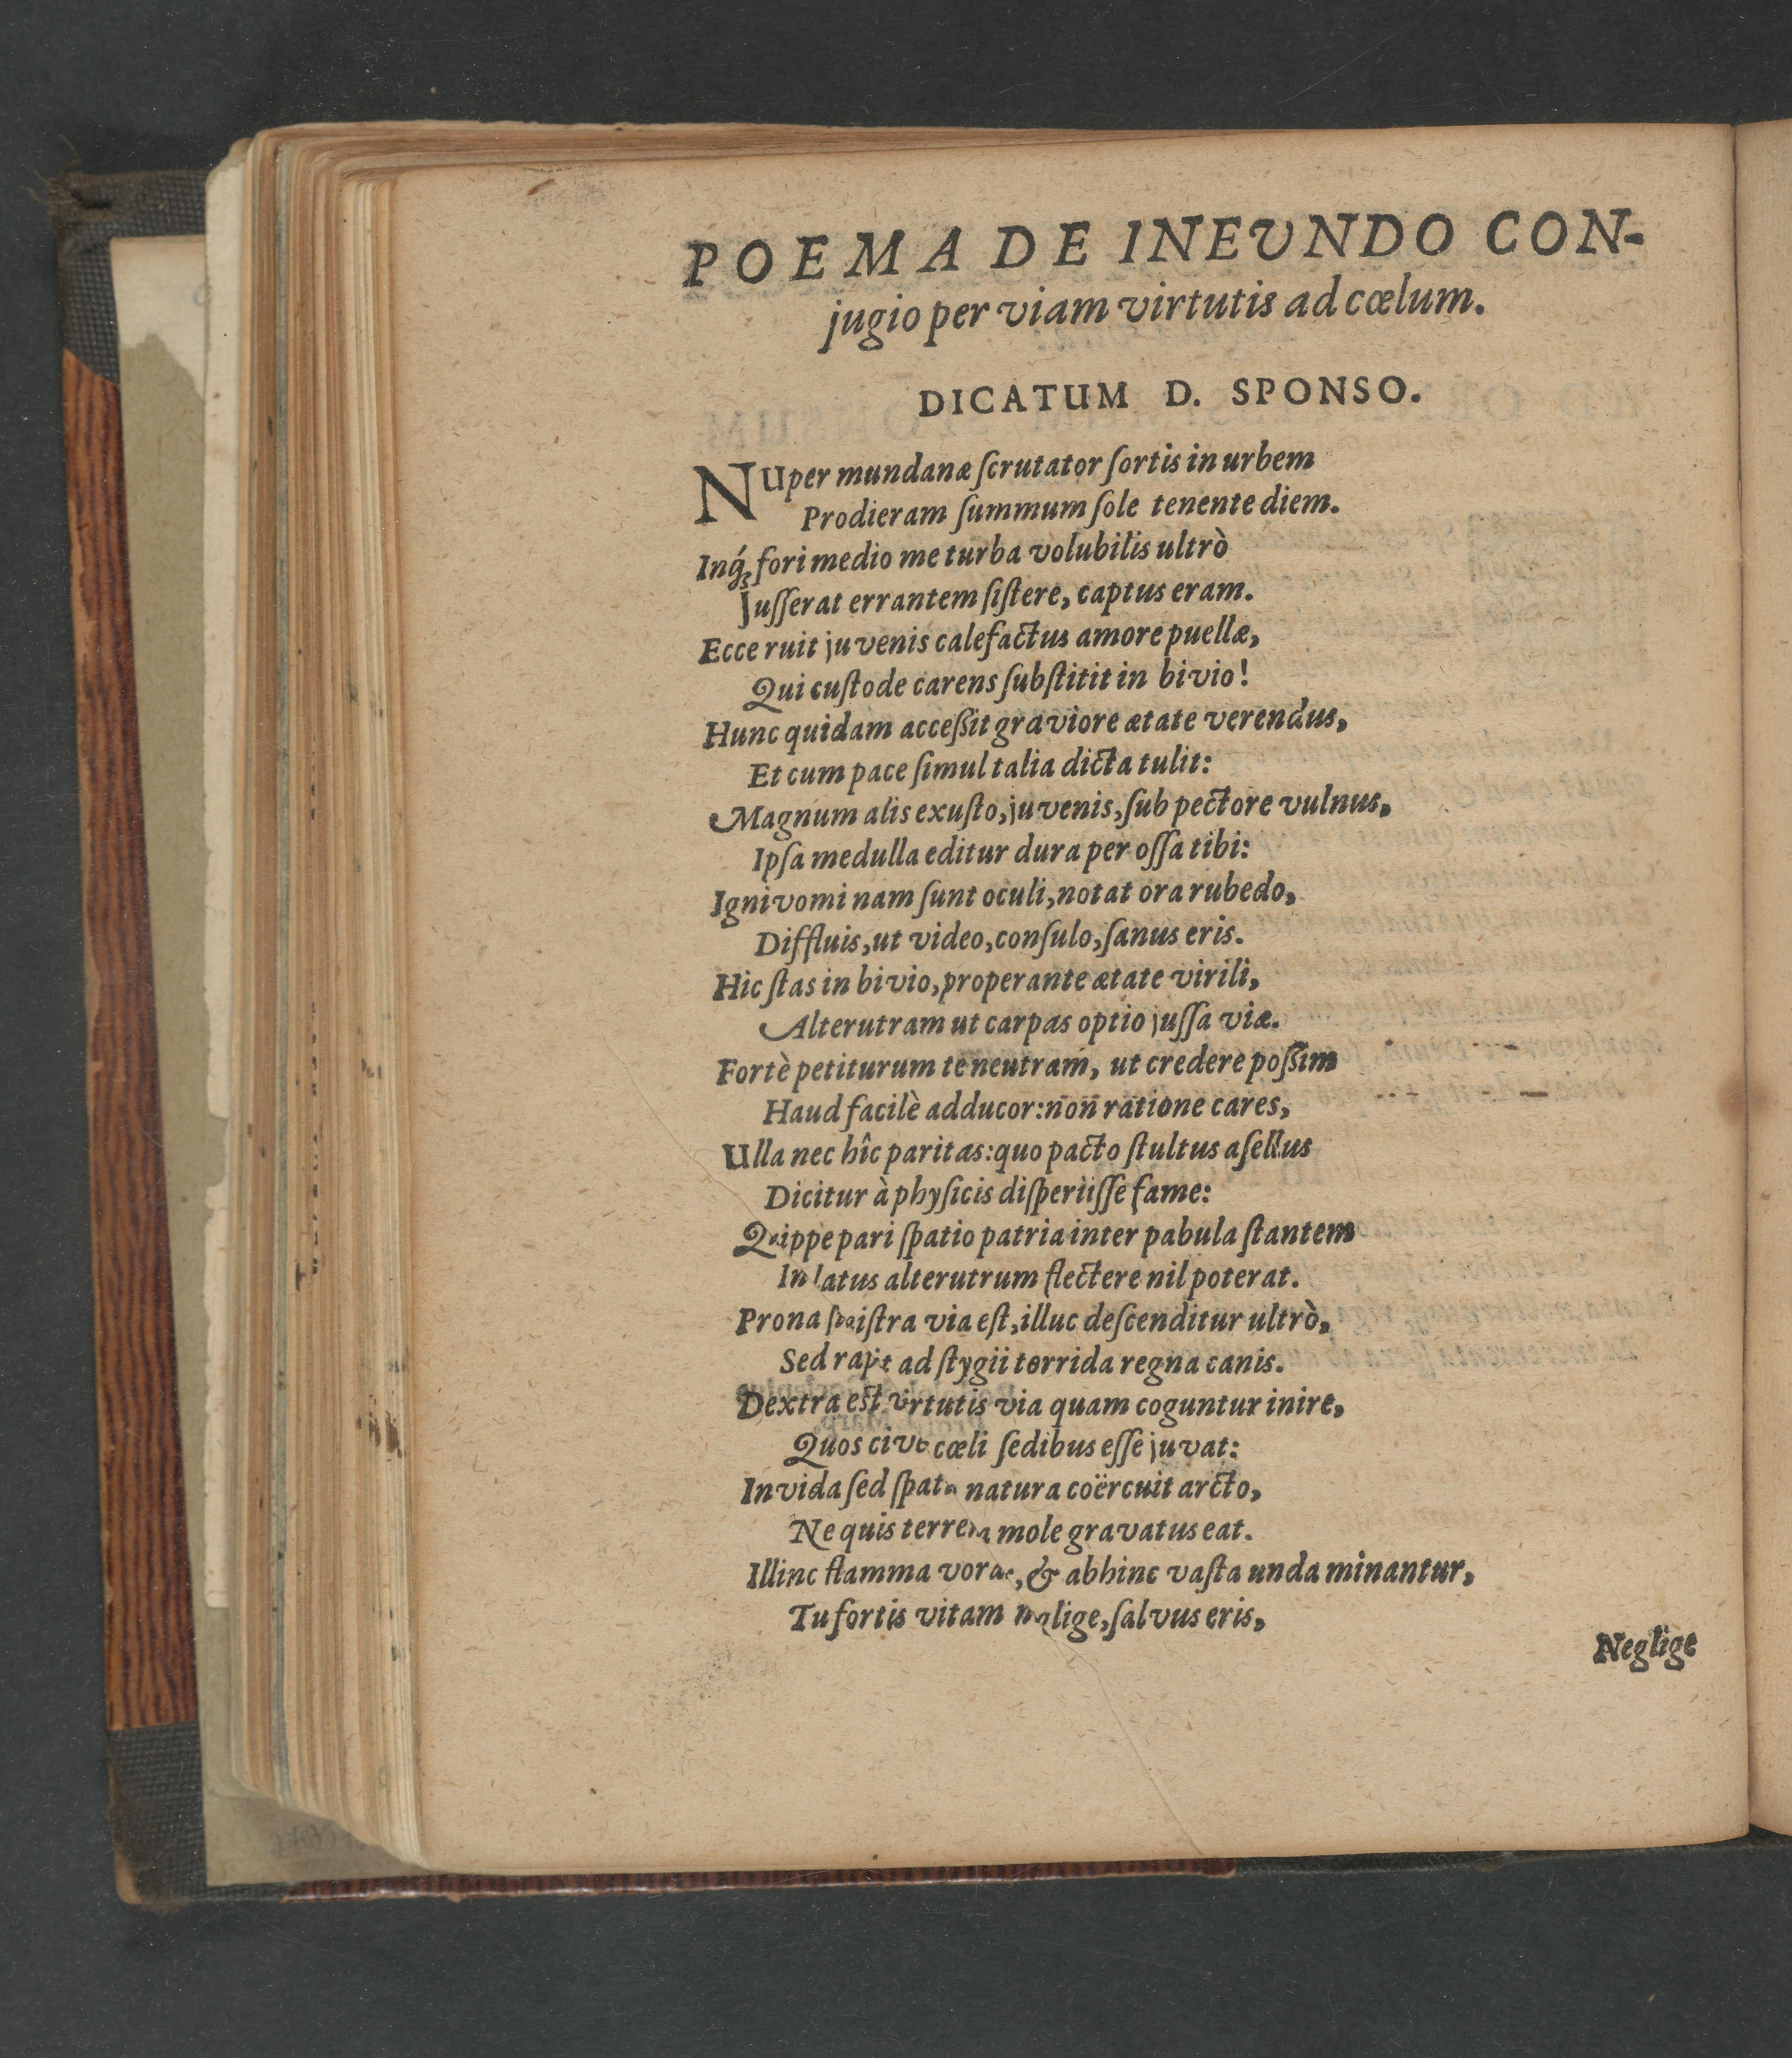 POEMA DE INEVNDO CON-
jugio per viam virtutis ad cœlum.
DICATUM D. SPONSO.
NUper mundanæ ſcrutator ſortis in urbem
Prodieram ſummum ſole tenente diem.
Inq́; fori medio me turba volubilis ultrò
Juſſerat errantem ſiſtere, captus eram.
Ecce ruit juvenis calefactus amore puellæ,
Qui cuſtode carens ſubſtitit in bivio!
Hunc quidam acceßit graviore ætate verendus,
Et cum pace ſimul talia dicta tulit:
Magnum alis exuſto, juvenis, ſub pectore vulnus,
Ipſa medulla editur dura per oſſa tibi:
Ignivomi nam ſunt oculi, notat ora rubedo,
Diffluis, ut video, conſulo, ſanus eris.
Hic ſtas in bivio, properante ætate virili,
Alterutram ut carpas optio juſſa viæ.
Fortè petiturum te neutram, ut credere poßim
Haud facilè adducor: non ratione cares,
Ulla nec hîc paritas: quo pacto ſtultus aſellus
Dicitur à phyſicis diſperiiſſe fame:
Quippe pari ſpatio patria inter pabula ſtantem
In latus alterutrum flectere nil poterat.
Prona ſiniſtra via eſt, illuc deſcenditur ultrò,
Sed rapit ad ſtygii torrida regna canis.
Dextra eſt virtutis via quam coguntur inire,
Quos cives cœli ſedibus eſſe juvat:
Invida ſed ſpatio natura coërcuit arcto,
Ne quis terrena mole gravatus eat.
Illinc flamma vorax, & abhinc vaſta unda minantur,
Tu fortis vitam neglige, ſalvus eris,
Neglige